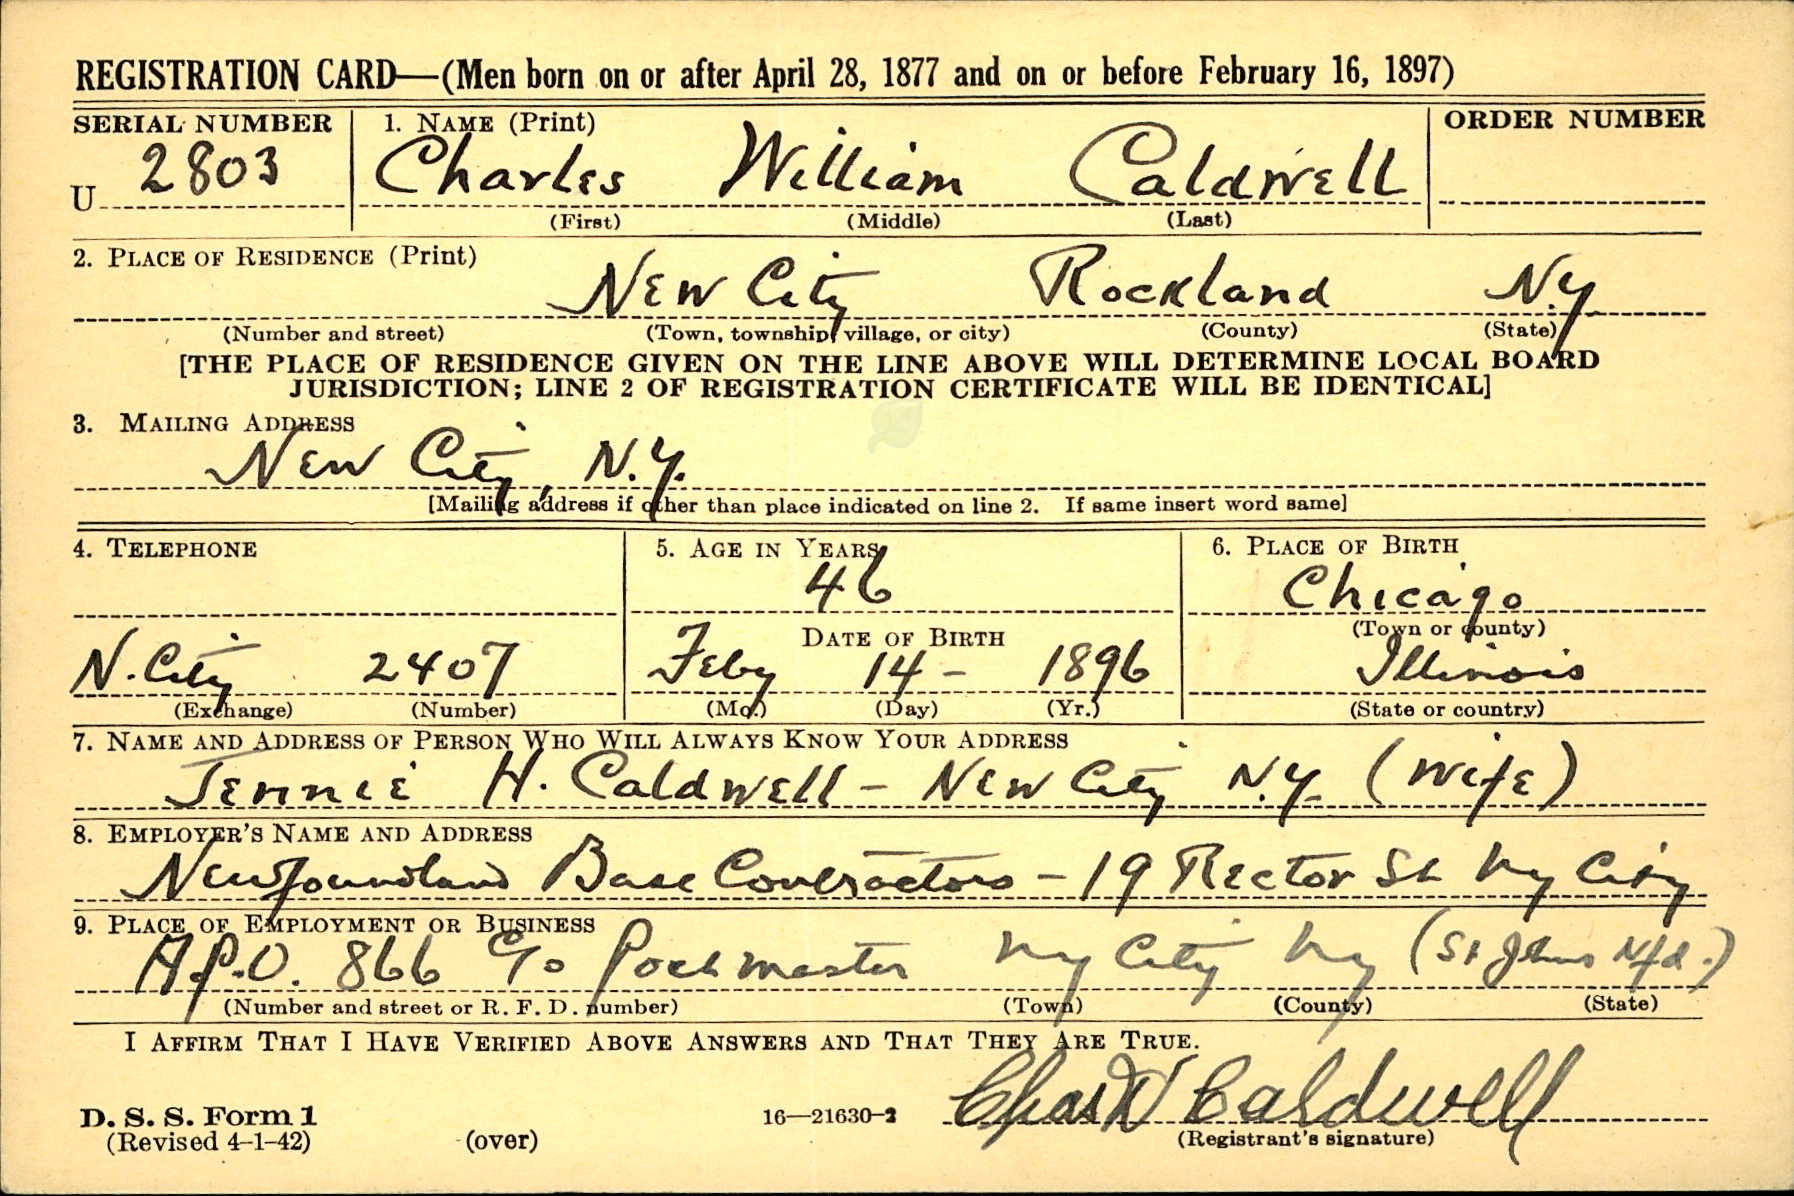 REGISTRATION CARD—(Men born on or after April 28, 1877 and on or before February 16, 1897)
SERIAL NUMBER 1. NAME (Print) ORDER NUMBER
U 2803 Charles William Caldwell
(First) (Middle) (Last)
2. PLACE OF RESIDENCE (Print)
New City Rockland N.Y.
(Number and street) (Town, township, village, or city) (County) (State)
[THE PLACE OF RESIDENCE GIVEN ON THE LINE ABOVE WILL DETERMINE LOCAL BOARD
JURISDICTION; LINE 2 OF REGISTRATION CERTIFICATE WILL BE IDENTICAL]
3. MAILING ADDRESS
New City, N.Y.
[Mailing address if other than place indicated on line 2. If same insert word same]
4. TELEPHONE 5. AGE IN YEARS 6. PLACE OF BIRTH
46 Chicago
DATE OF BIRTH (Town or county)
N. City 2407 Feby 14 - 1896 Illinois
(Exchange) (Number) (Mo.) (Day) (Yr.) (State or country)
7. NAME AND ADDRESS OF PERSON WHO WILL ALWAYS KNOW YOUR ADDRESS
Jennie H. Caldwell - New City N.Y. (Wife)
8. EMPLOYER'S NAME AND ADDRESS
Newfoundland Base Contractors - 19 Rector St Ny City
9. PLACE OF EMPLOYMENT OR BUSINESS
A.P.O. 866 c/o Postmaster Ny City Ny (St Johns Nfd.)
(Number and street or R. F. D. number) (Town) (County) (State)
I AFFIRM THAT I HAVE VERIFIED ABOVE ANSWERS AND THAT THEY ARE TRUE.
Chas W Caldwell
D. S. S. Form 1 16—21630-2
(Revised 4-1-42) (over) (Registrant's signature)